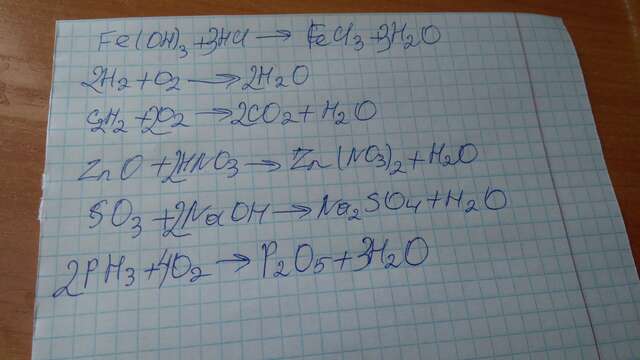 Fe(OH)3 + 3HCl → FeCl3 + 3H2O
2H2 + O2 → 2H2O
C2H2 + 2O2 → 2CO2 + H2O
ZnO + 2HNO3 → Zn(NO3)2 + H2O
SO3 + 2NaOH → Na2SO4 + H2O
2PH3 + 4O2 → P2O5 + 3H2O